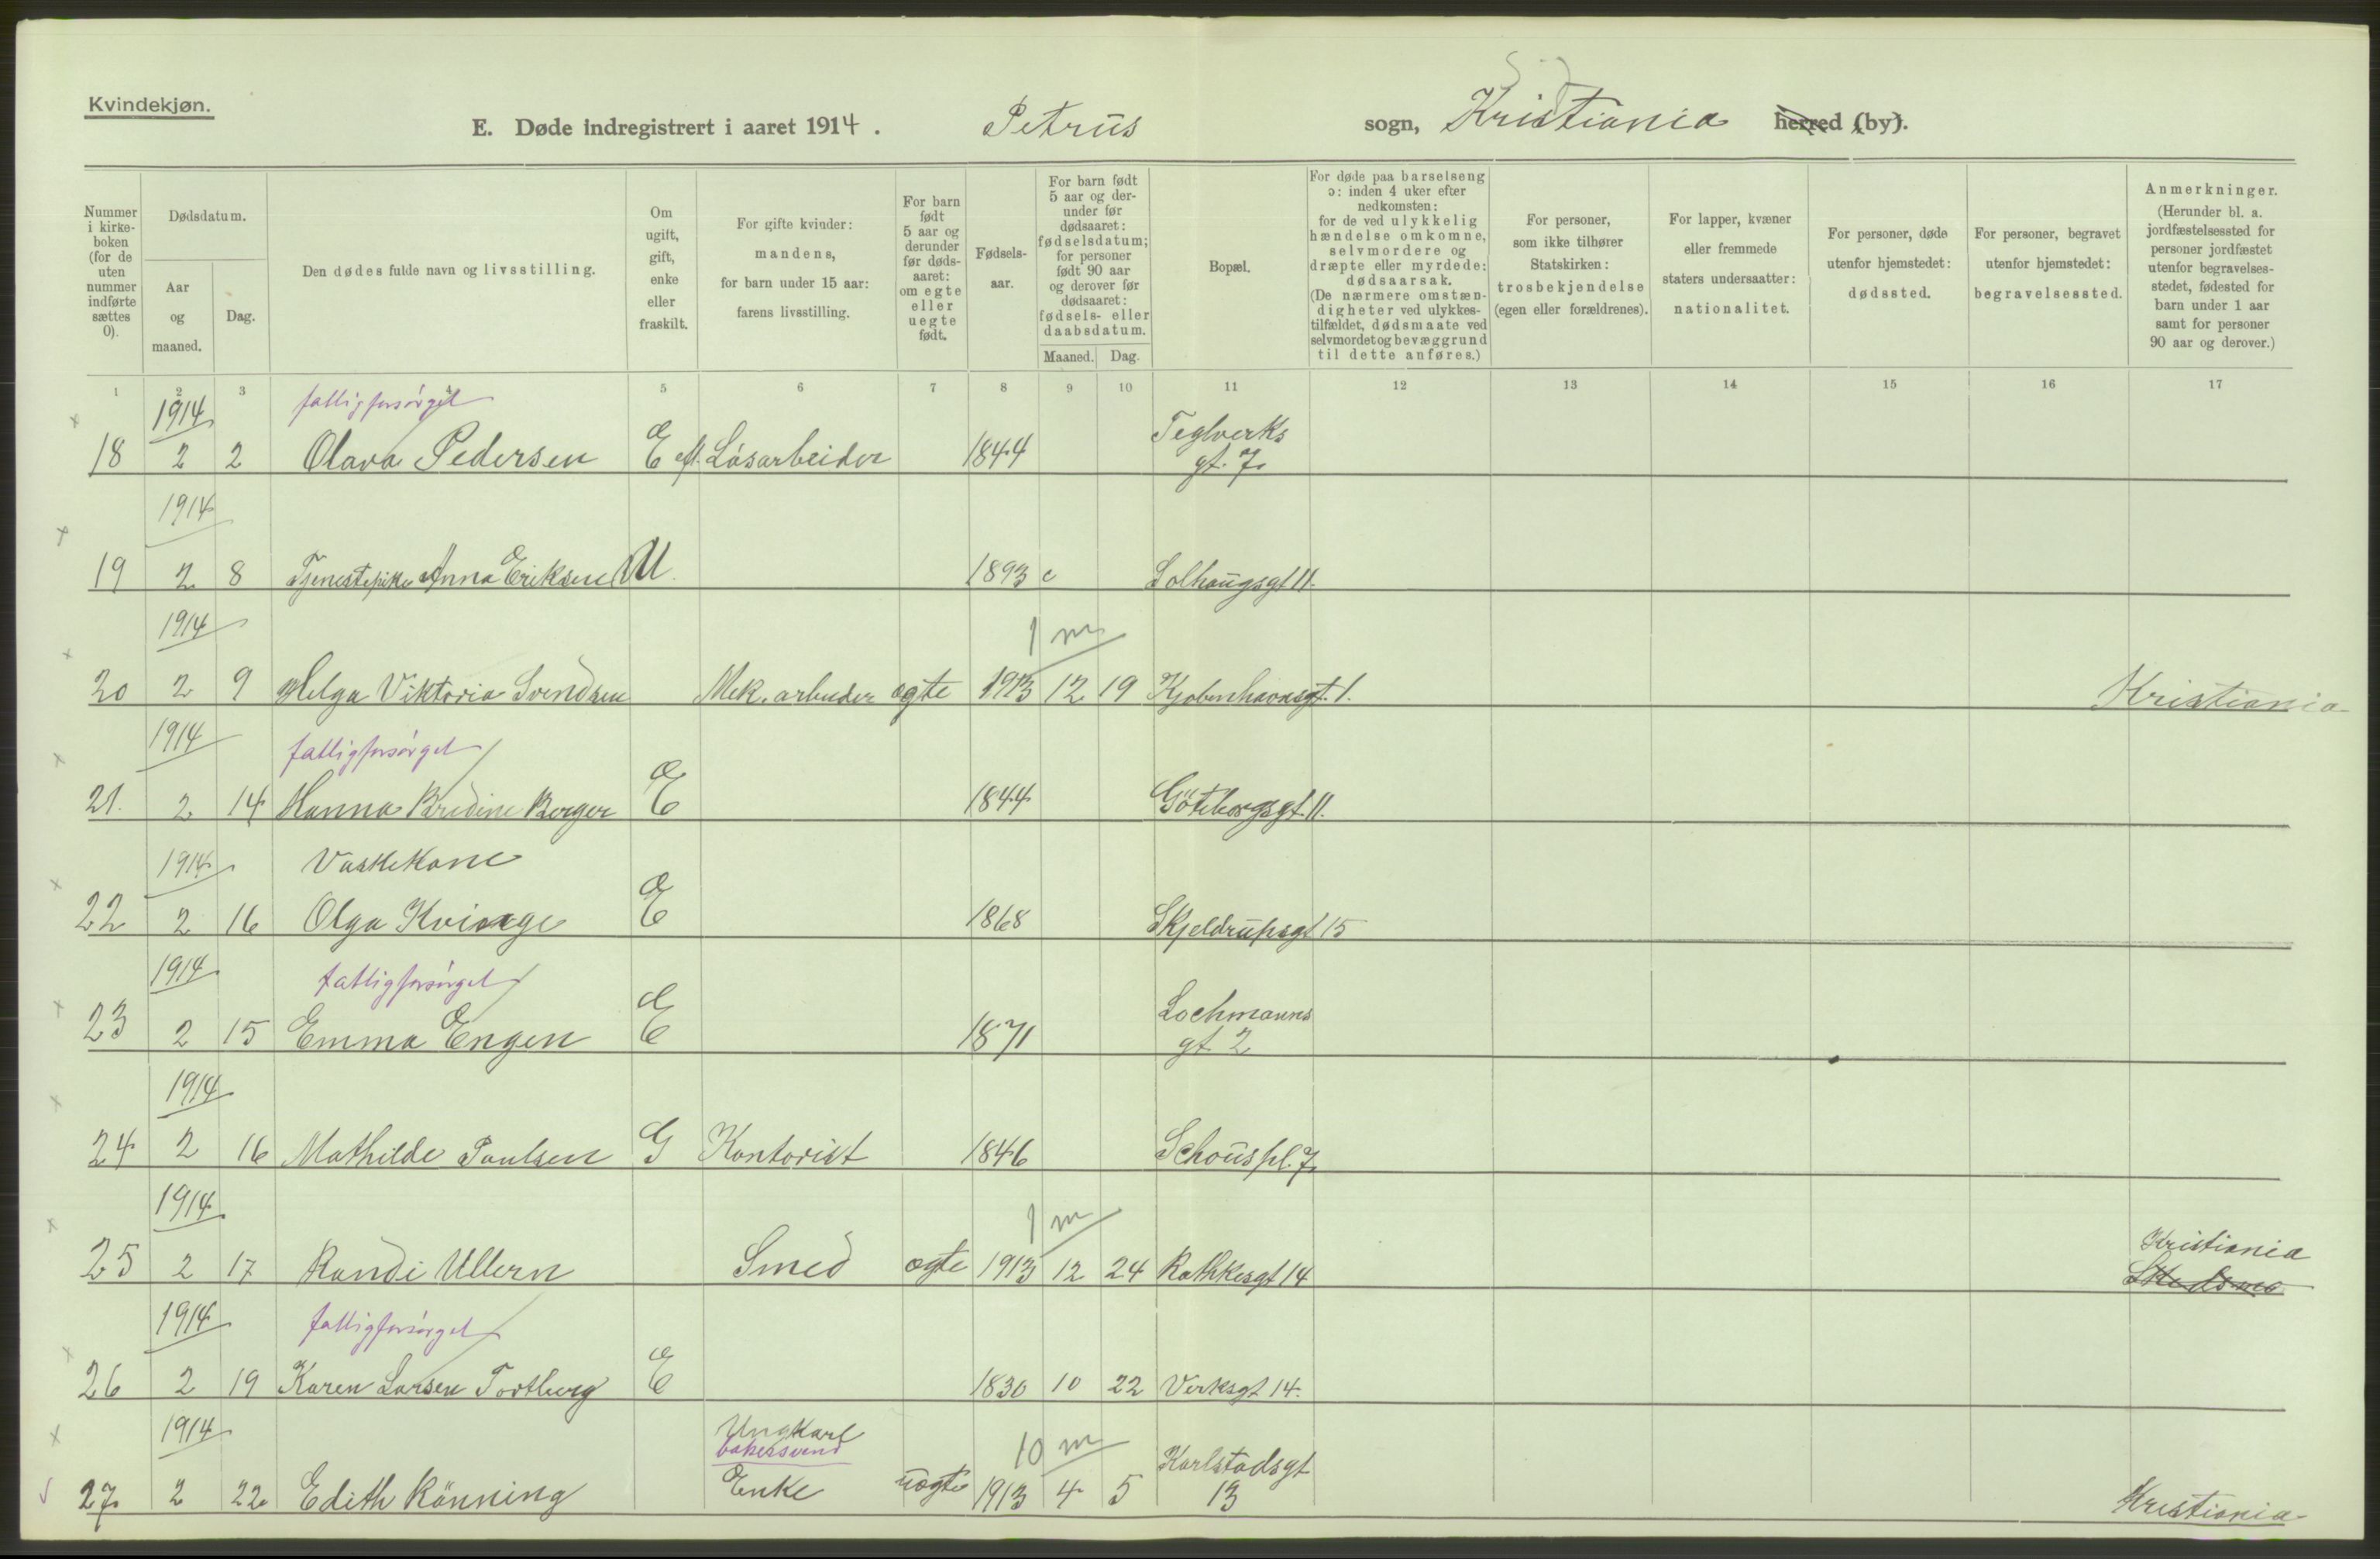 Kvindekjøn.
E. Døde indregistrert i aaret 1914. Petrus sogn, Kristiania herred (by).
Nummer i kirkeboken (for de uten nummer indførte sættes 0).
Dødsdatum.
Aar og maaned.
Dag.
Den dødes fulde navn og livsstilling.
Om ugift, gift, enke eller fraskilt.
For gifte kvinder: mandens, for barn under 15 aar: farens livsstilling.
For barn født 5 aar og derunder før dødsaaret: om egte eller uegte født.
Fødselsaar.
For barn født 5 aar og derunder før dødsaaret: fødselsdatum; for personer født 90 aar og derover før dødsaaret: fødsels- eller daabsdatum.
Maaned. Dag.
Bopæl.
For døde paa barselseng ɔ: inden 4 uker efter nedkomsten: for de ved ulykkelig hændelse omkomne, selvmordere og dræpte eller myrdede: dødsaarsak. (De nærmere omstændigheter ved ulykkestilfældet, dødsmaate ved selvmordet og bevæggrund til dette anføres.)
For personer, som ikke tilhører Statskirken: trosbekjendelse (egen eller forældrenes).
For lapper, kvæner eller fremmede staters undersaatter: nationalitet.
For personer, døde utenfor hjemstedet: dødssted.
For personer, begravet utenfor hjemstedet: begravelsessted.
Anmerkninger. (Herunder bl. a. jordfæstelsessted for personer jordfæstet utenfor begravelsesstedet, fødested for barn under 1 aar samt for personer 90 aar og derover.)
1 2 3 4 5 6 7 8 9 10 11 12 13 14 15 16 17
1914 fattigforsörget Teglverks
18 2 2 Olava Pedersen E eft. Lösarbeider 1844 gt. 7.
1914
19 2 8 Tjenestepike Anna Eriksen U. 1893 Solhaugsgt 11.
1914 1 m
20 2 9 Helga Viktoria Svendsen Mek. arbeider egte 1913 12 19 Kjøbenhavnsgt. 1. Kristiania
1914 fattigforsörget
21. 2 14 Hanna Bredine Berger E 1844 Göteborgsgt. 11.
1914 Vaskekone
22 2 16 Olga Kvinge E 1868 Skjeldrupsgt 15
1914 fattigforsörget Lochmanns
23 2 15 Emma Engen E 1871 gt 2
1914
24 2 16 Mathilde Paulsen G Kontorist 1846 Schous pl. 7.
1914 1 m Kristiania
25 2 17 Randi Ullern Smed egte 1913 12 24 Rathkesgt 14 Skedsmo
1914 fattigforsörget
26 2 19 Karen Larsen E 1830 10 22 Verksgt 14.
1914 Ungkarl
bakersvend 10 m Karlstadsgt
27. 2 22 Edith Rönning Enke uegte 1913 4 5 13 Kristiania